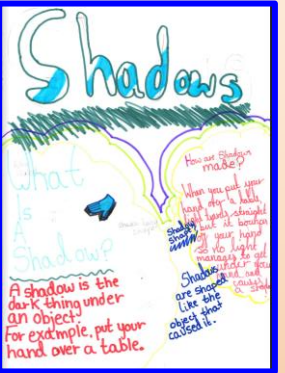 Shadows
What
Is
A
Shadow?
A shadow is the
dark thing under
an object.
For example, put your
hand over a table.
How are Shadows
made?
When you put your
hand over a table,
light travels straight
but it bounces
off your hand
so no light
manages to get
under your
hand and
causes
a shadow
Shadow
shapes
Shadows
are shaped
like the
object that
caused it.